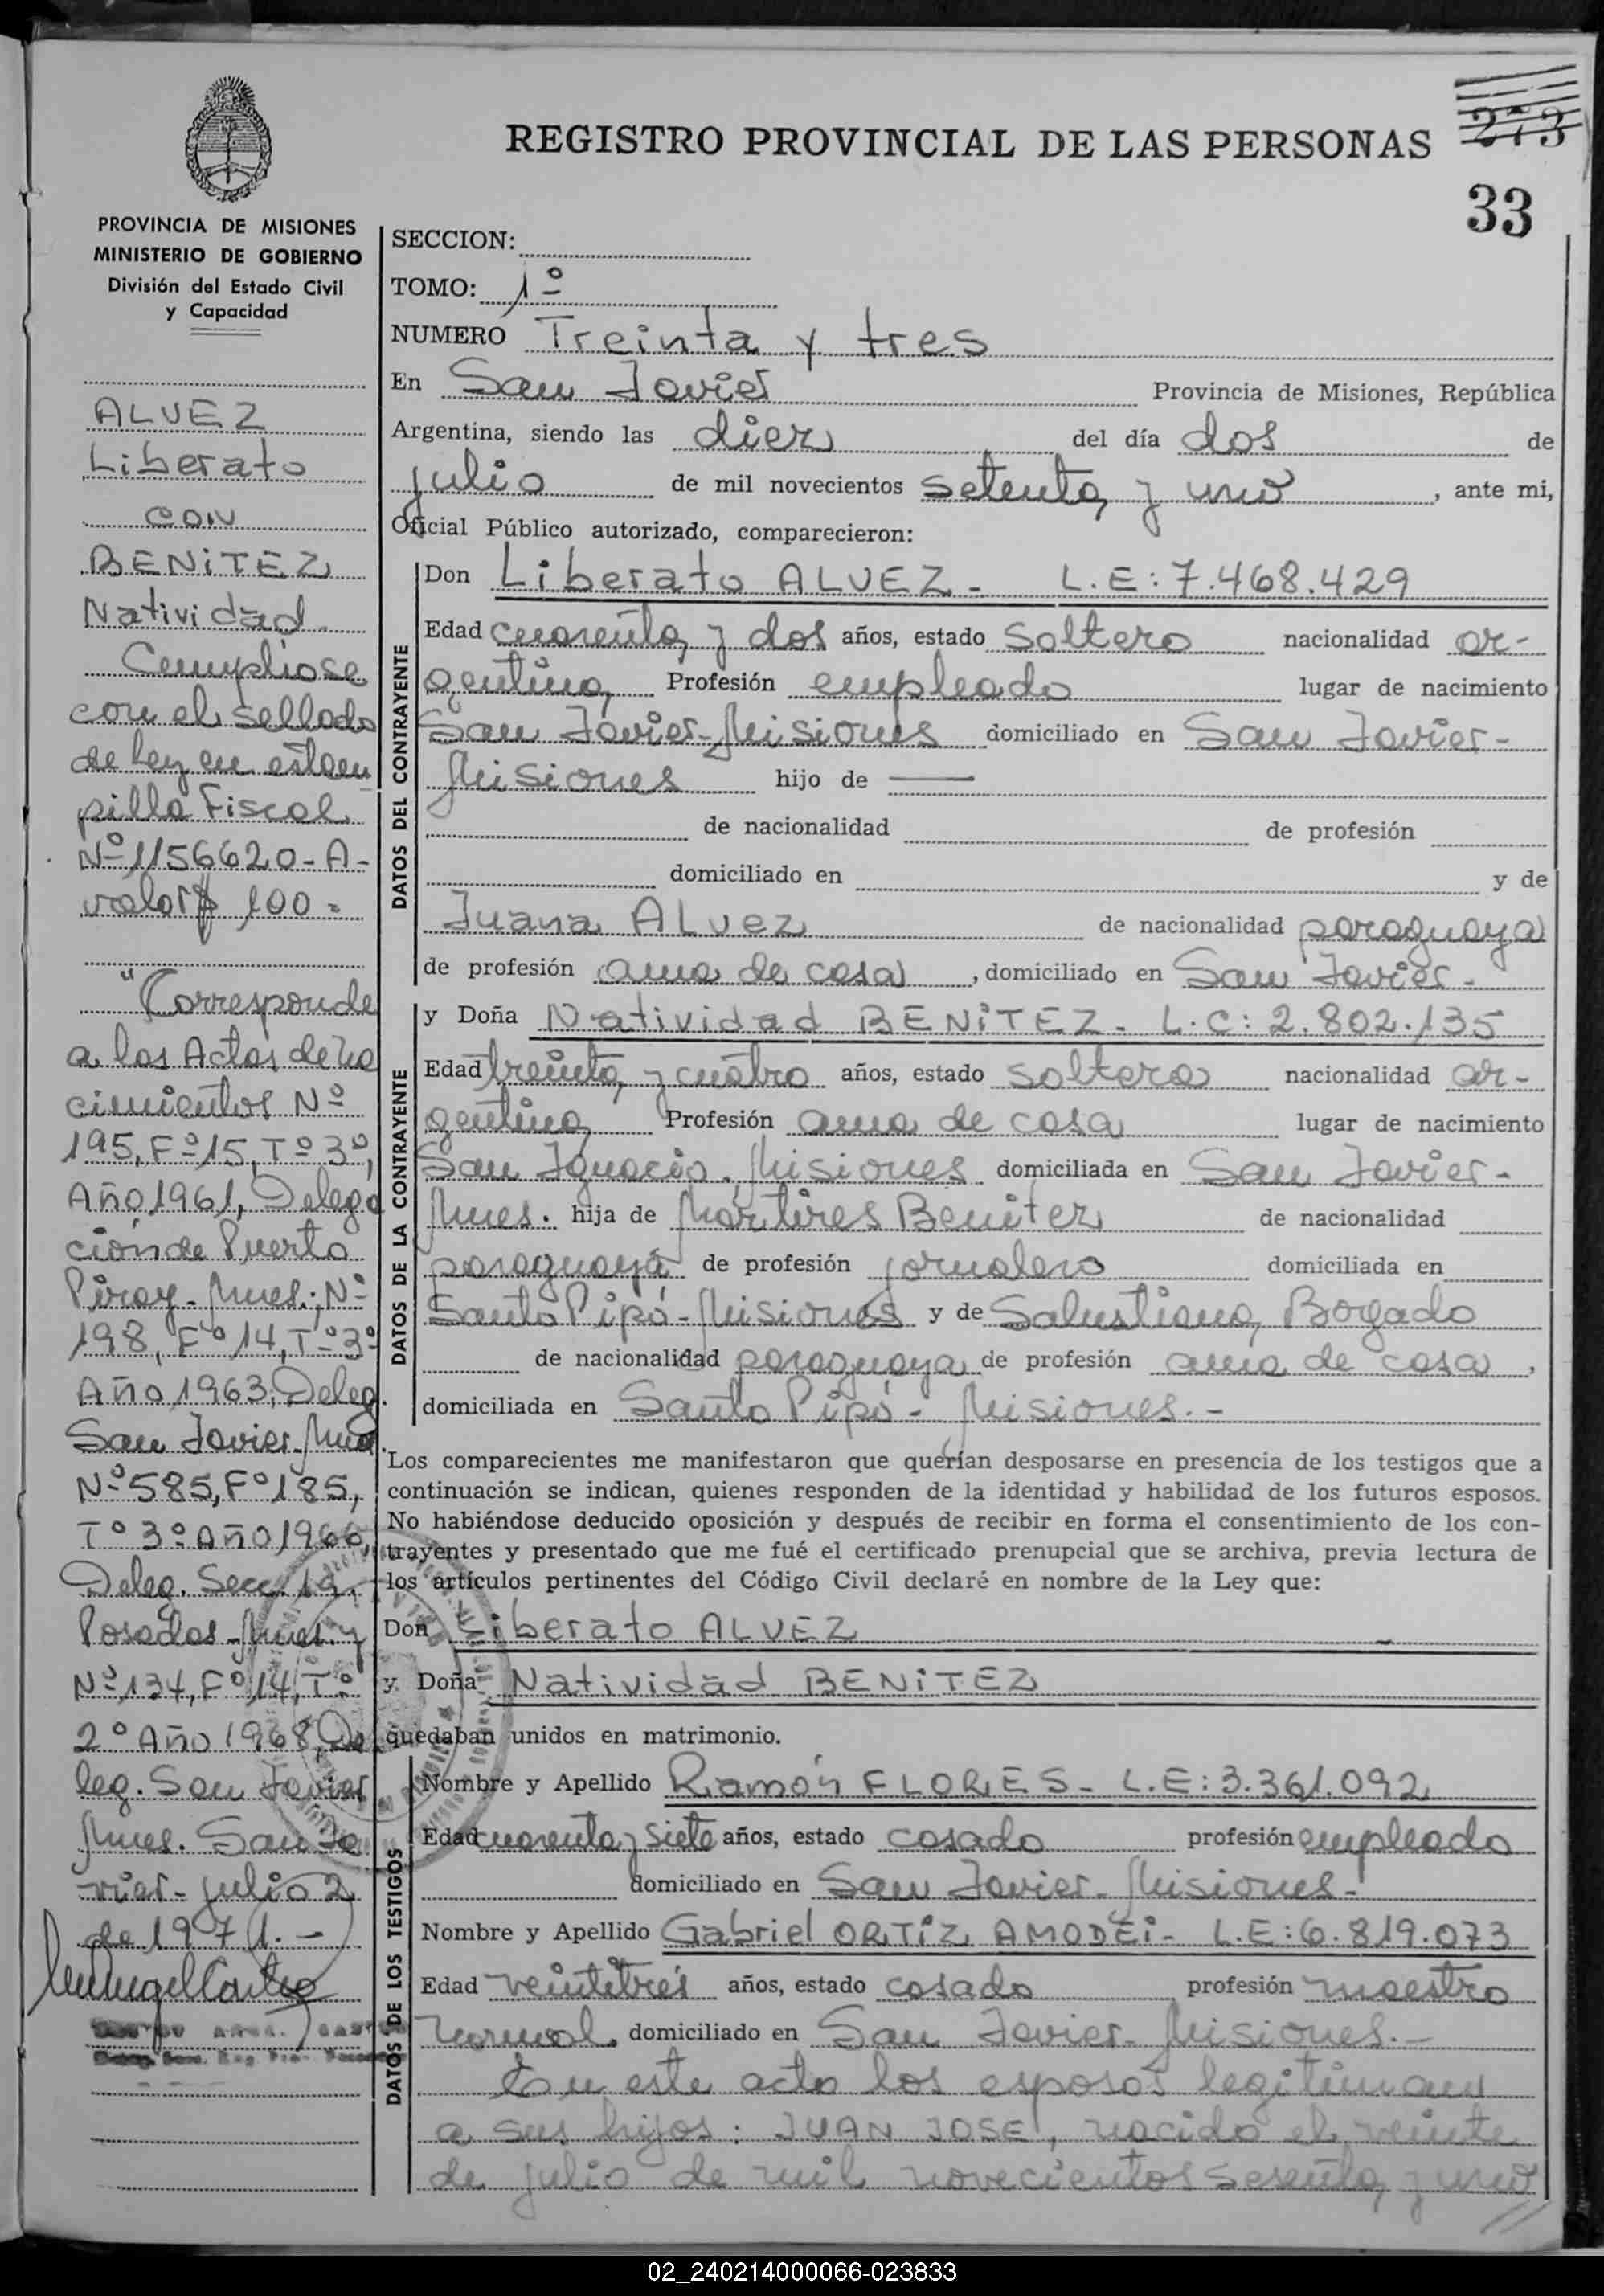 REGISTRO PROVINCIAL DE LAS PERSONAS
273
33
PROVINCIA DE MISIONES
MINISTERIO DE GOBIERNO
División del Estado Civil
y Capacidad
ALVEZ
Liberato
CON
BENITEZ
Natividad
Cumpliose
con el sellado
de Ley en estam
pilla Fiscal
Nº 1156620-A-
valor $ 100-
"Corresponde
a las Actas de na
cimientos Nº
195, Fº 15, Tº 3º,
Año 1961, Delega
ción de Puerto
Piray-Mnes.; Nº
198, Fº 14, Tº 3º
Año 1963, Deleg.
San Javier-Mnes.
Nº 585, Fº 185,
Tº 3º Año 1966,
Deleg. Secc. 1ª
Posadas-Mnes. y
Nº 134, Fº 14, Tº
2º Año 1968, De
leg. San Javier
Mnes. San Ja
vier-julio 2
de 1971.-
SECCION:
TOMO: 1º
NUMERO Treinta y tres
En San Javier Provincia de Misiones, República
Argentina, siendo las diez del día dos de
julio de mil novecientos setenta y uno, ante mi,
Oficial Público autorizado, comparecieron:
DATOS DEL CONTRAYENTE
Don Liberato ALVEZ- L.E: 7.468.429
Edad cuarenta y dos años, estado soltero nacionalidad ar-
gentina Profesión empleado lugar de nacimiento
San Javier-Misiones domiciliado en San Javier-
Misiones hijo de ——
de nacionalidad de profesión
domiciliado en y de
Juana ALvez de nacionalidad paraguaya
de profesión ama de casa, domiciliado en San Javier-
DATOS DE LA CONTRAYENTE
y Doña Natividad BENITEZ- L.C: 2.802.135
Edad treinta y cuatro años, estado soltera nacionalidad ar-
gentina Profesión ama de casa lugar de nacimiento
San Ignacio-Misiones domiciliada en San Javier-
Mnes. hija de Mártires Benitez de nacionalidad
paraguaya de profesión jornalero domiciliada en
Santo Pipó-Misiones y de Salustiana Bogado
de nacionalidad paraguaya de profesión ama de casa,
domiciliada en Santo Pipó- Misiones.-
Los comparecientes me manifestaron que querían desposarse en presencia de los testigos que a
continuación se indican, quienes responden de la identidad y habilidad de los futuros esposos.
No habiéndose deducido oposición y después de recibir en forma el consentimiento de los con-
trayentes y presentado que me fué el certificado prenupcial que se archiva, previa lectura de
los artículos pertinentes del Código Civil declaré en nombre de la Ley que:
Don Liberato ALVEZ
y Doña Natividad BENITEZ
quedaban unidos en matrimonio.
DATOS DE LOS TESTIGOS
Nombre y Apellido Ramón FLORES- L.E: 3.361.092
Edad cuarenta y siete años, estado casado profesión empleado
domiciliado en San Javier-Misiones-
Nombre y Apellido Gabriel ORTIZ AMODEI- L.E: 6.819.073
Edad veintitres años, estado casado profesión maestro
normal domiciliado en San Javier-Misiones.-
En este acto los esposos legitiman
a sus hijos: JUAN JOSE, nacido el veinte
de julio de mil novecientos sesenta y uno
02_240214000066-023833